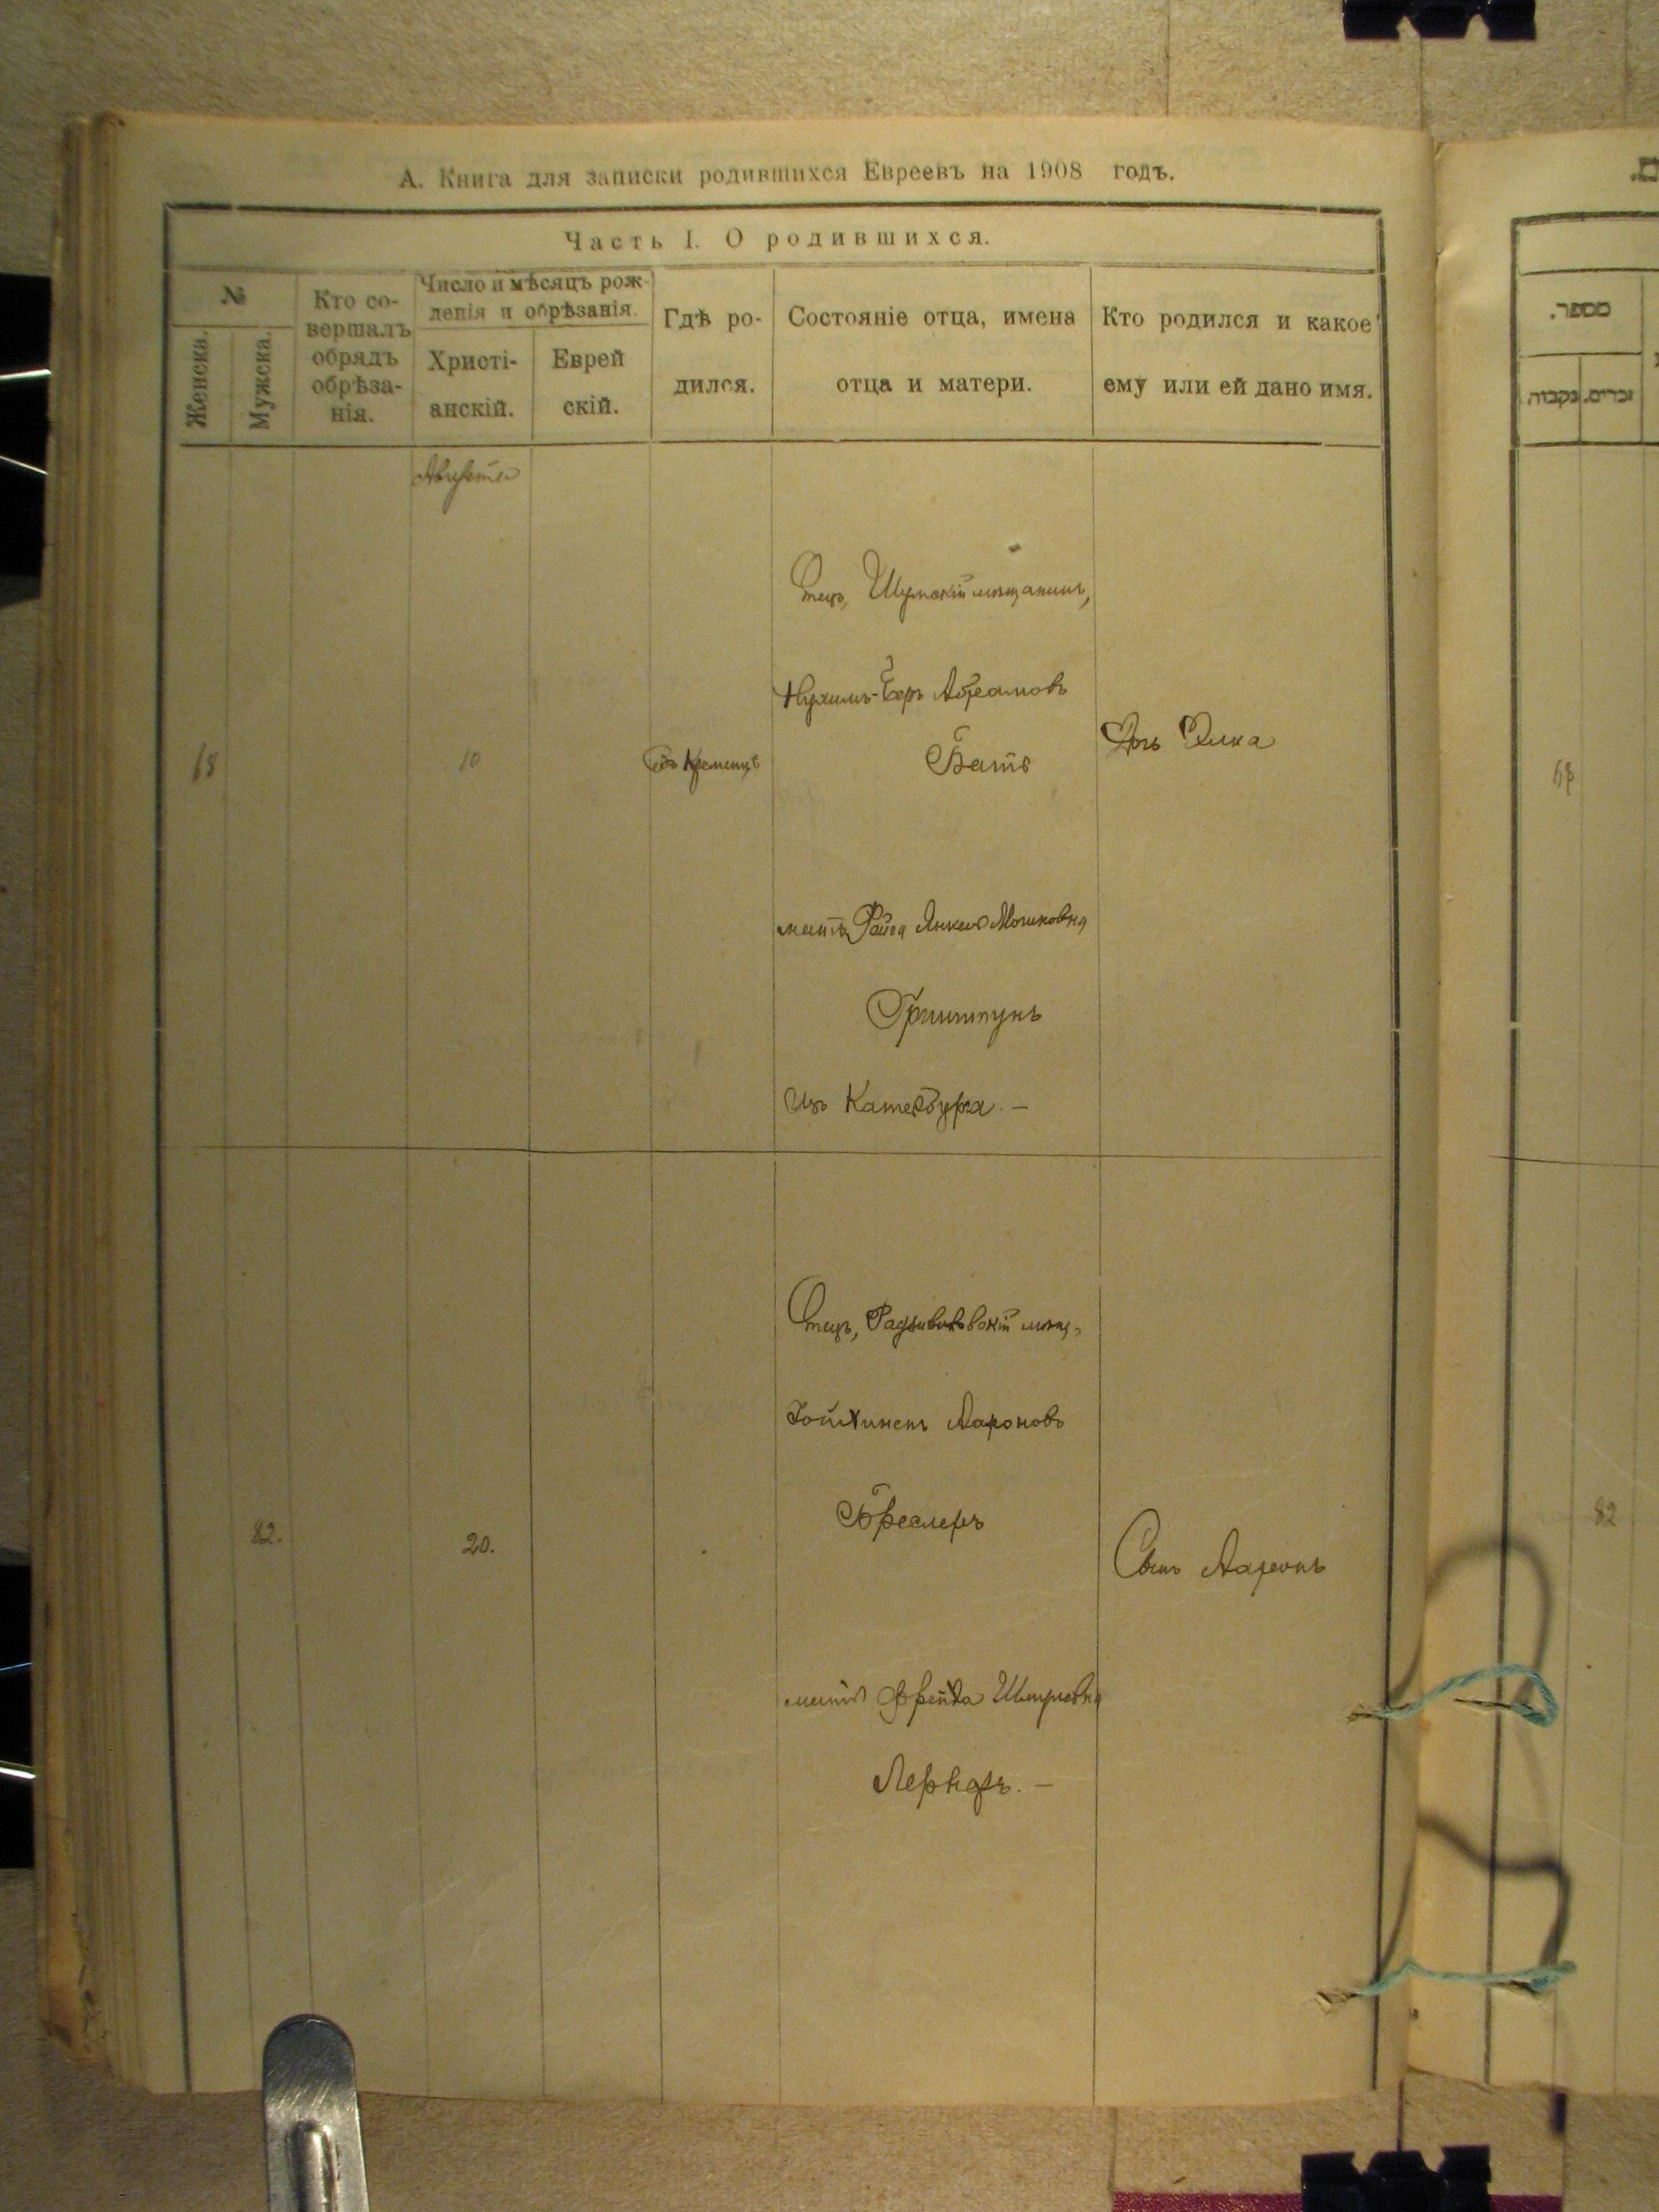 А. Книга для записки родившихся Евреевъ на 1908 годъ.
Часть I. О родившихся.
№
Женска.
Мужска.
Кто со-
вершалъ
обрядъ
обрѣза-
нія.
Число и мѣсяцъ рож-
денія и обрѣзанія.
Христі-
анскій.
Еврей
скій.
Гдѣ ро-
дился.
Состояніе отца, имена
отца и матери.
Кто родился и какое
ему или ей дано имя.
Августа
68
10
Въ Кременцѣ
Отецъ, Шумскій мѣщанинъ,
Нухимъ-Беръ Абрамовъ
Батъ
мать Файга Янкель Мошковна
Гринштунъ
Изъ Катербурга. —
Дочь Элка
82.
20.
Отецъ, Радзивиловскій мѣщ.
Аароновъ
Бреслеръ
мать Фрейда Шмулевна
Лернеръ. —
Сынъ Ааронъ
מספר.
נקבות.
זכרים.
68
82